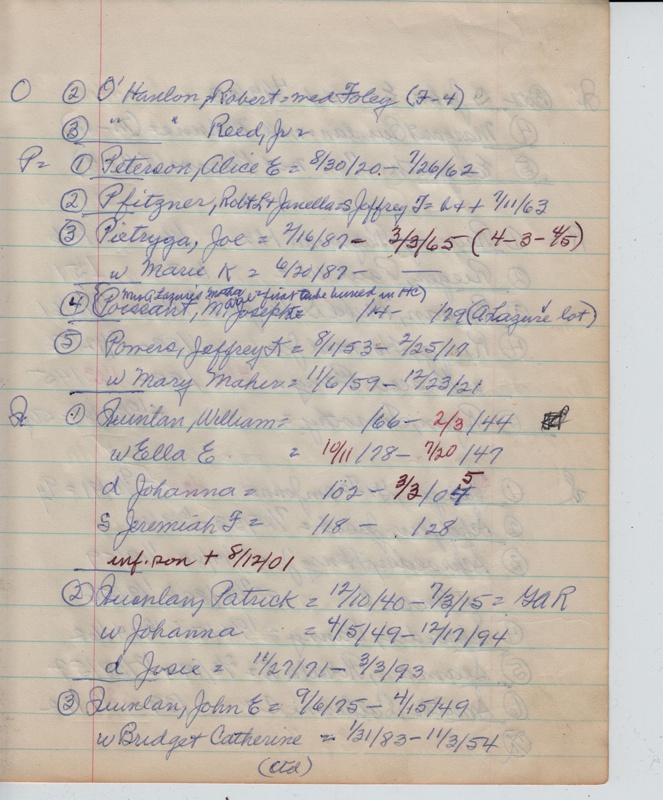 O ② O'Hanlon, Robert = med Foley (F-4)
③ " " Reed, Jr =
P= ① Peterson, Alice E = 8/30/20 - 7/26/62
② Pfitzner, Robt L + Janella = s Jeffrey F = b + + 7/11/63
③ Pietryga, Joe = 2/16/87 - 3/3/65 (4-3-65)
w Marie K = 6/20/87 - —
Mrs A Lazure's mother first to be buried in HC)
④ Poissant, Mrs Joseph = /14 - /29 (A Lazure lot)
⑤ Powers, Jeffrey K = 8/1/53 - 2/25/17
w Mary Maher = 11/6/59 - 12/23/21
Q ① Quinlan, William = /66 - 2/3/44
w Ella E = 10/11/78 - 7/20/47
d Johanna = 102 - 3/3/05
s Jeremiah F = /18 - 128
inf. son + 8/12/01
② Quinlan, Patrick = 12/10/40 - 7/3/15 = GAR
w Johanna = 4/5/49 - 12/17/94
d Josie = 11/27/71 - 3/3/93
③ Quinlan, John E = 9/6/75 - 4/15/49
w Bridget Catherine = 1/31/83 - 11/3/54
(ctd)